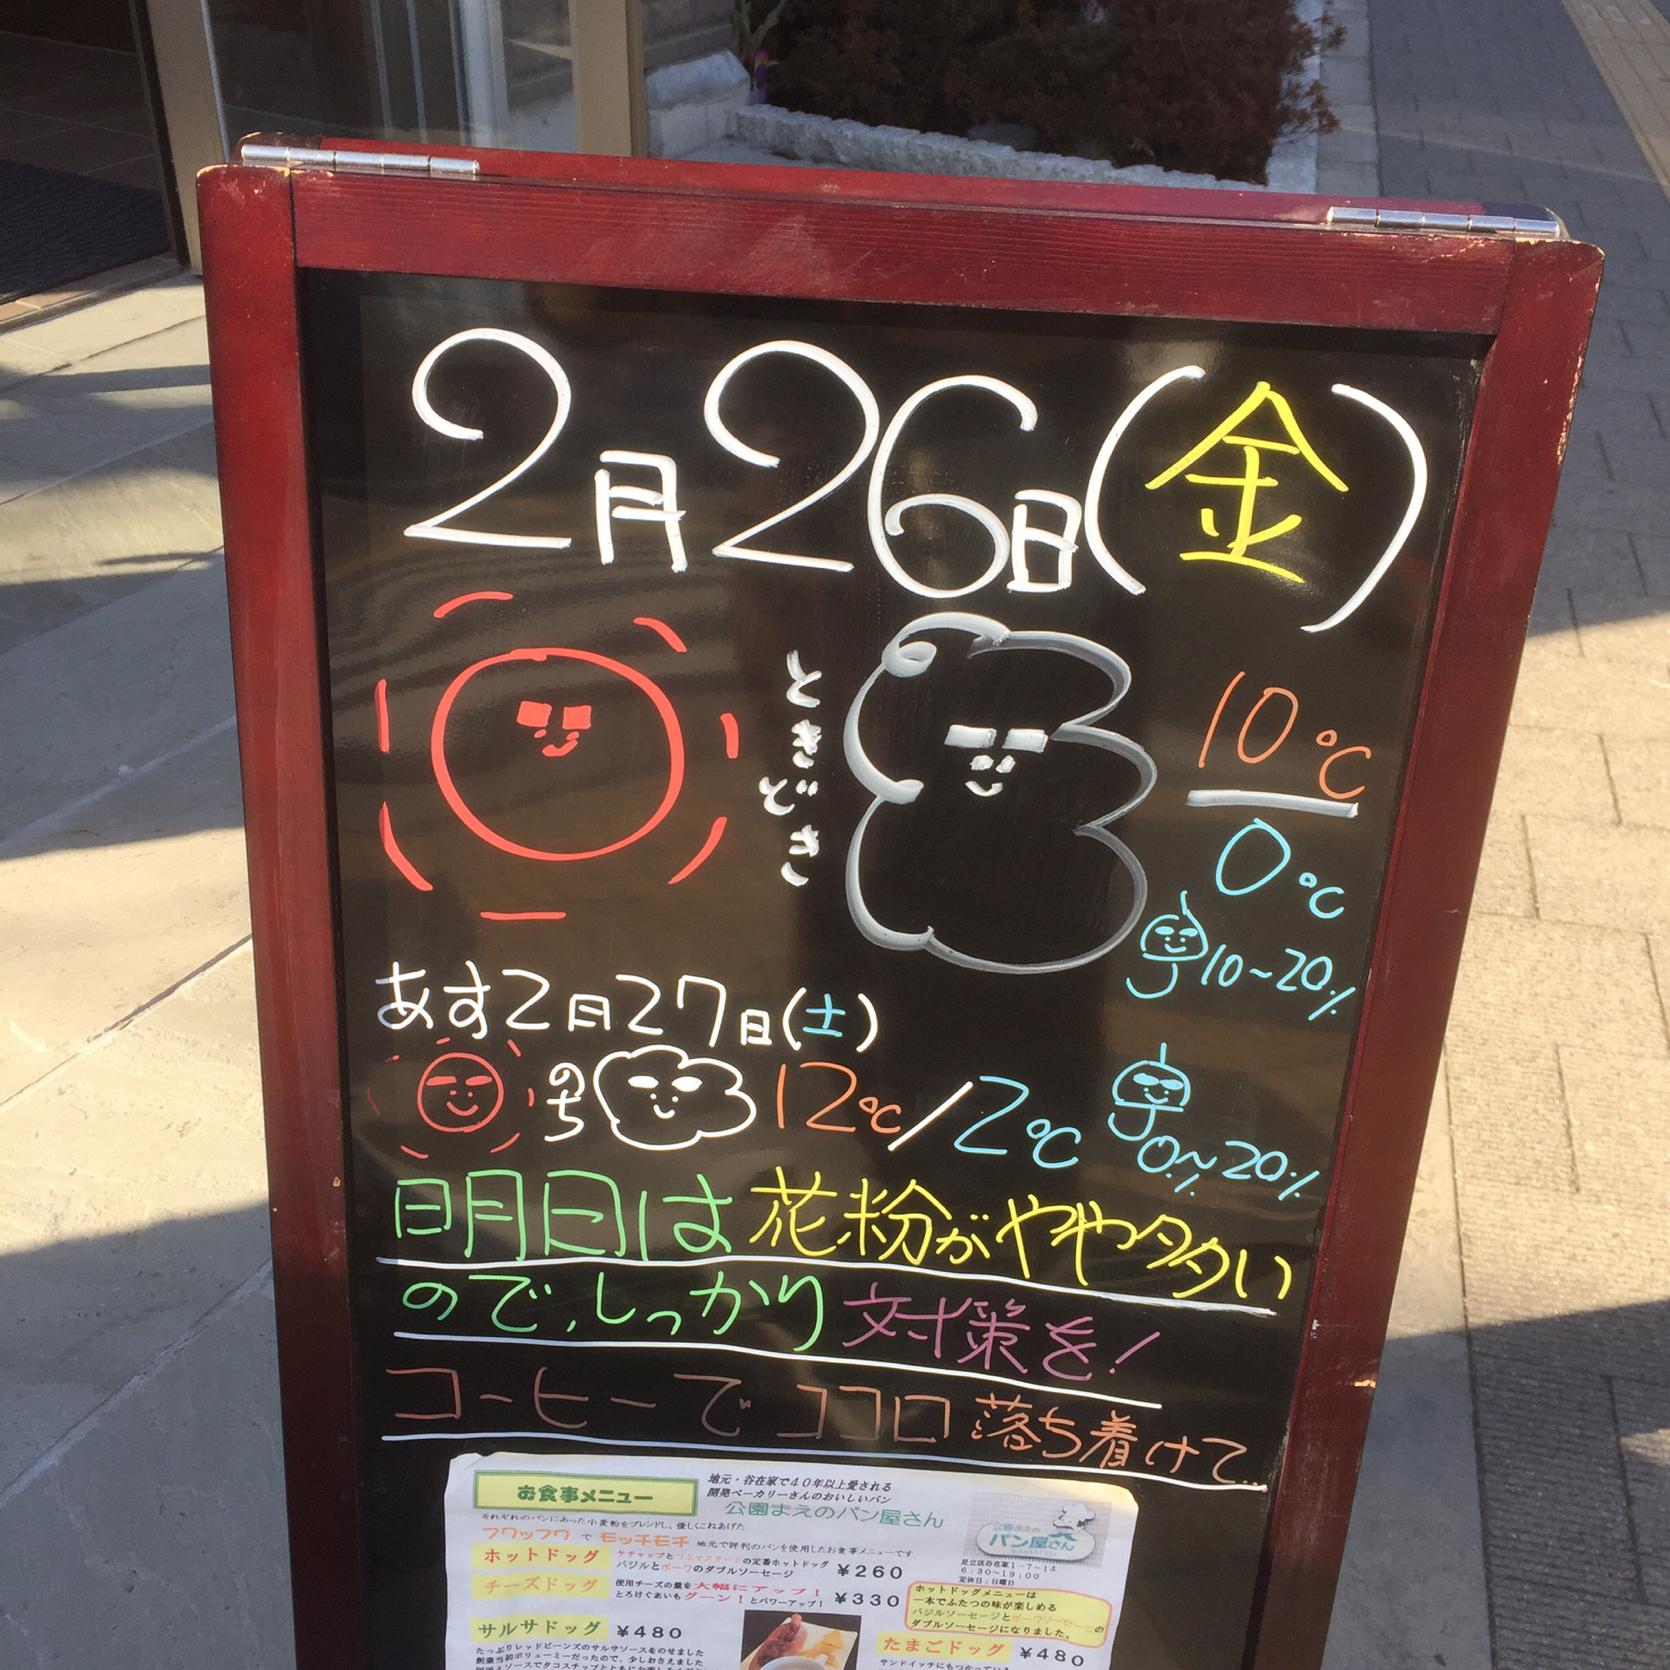 2月26日(金)
ときどき
10℃
0℃
10~20%
あす2月27日(土)
のち
12℃/2℃
0%~20%
明日は花粉がやや多い
ので、しっかり対策を!
コーヒーでココロ落ち着けて…
お食事メニュー
地元・谷在家で40年以上愛される
開発ベーカリーさんのおいしいパン
公園まえのパン屋さん
それぞれのパンにあった小麦粉をブレンドし、優しくこねあげた
フワッフワ で モッチモチ 地元で評判のパンを使用したお食事メニューです
公園まえの
パン屋さん
足立区谷在家1-7-14
6:30~19:00
定休日:日曜日
ホットドッグ
ケチャップとつぶマスタードの定番ホットドッグ
バジルとポークのダブルソーセージ
¥260
チーズドッグ
使用チーズの量を大幅にアップ!
とろけぐあいもグーン!とパワーアップ!
¥330
ホットドッグメニューは
一本でふたつの味が楽しめる
バジルソーセージとポークソーセージの
ダブルソーセージになりました。
サルサドッグ ¥480
たっぷりレッドビーンズのサルサソースをのせました
創業当初ボリューミーだったので、少しおさえました
たまごドッグ ¥480